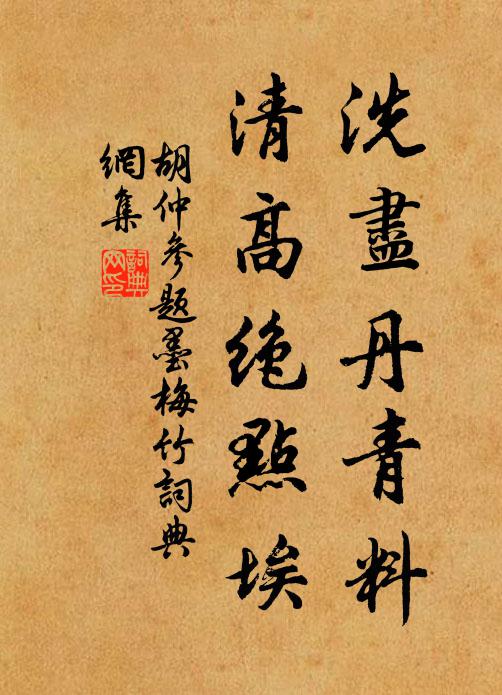 洗盡丹青料
清高絶點埃
胡仲參題墨梅竹詞典
網集
詞典網印